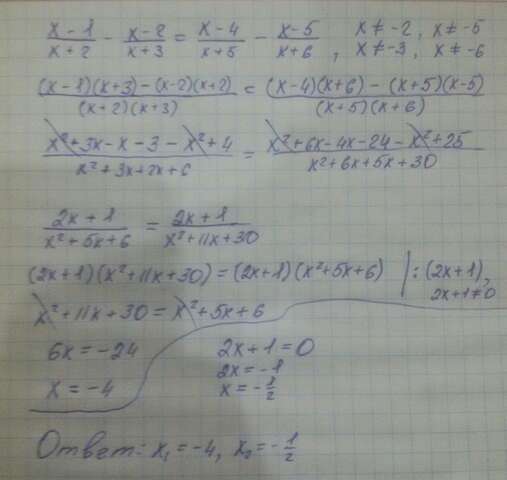 (x-1)/(x+2) - (x-2)/(x+3) = (x-4)/(x+5) - (x-5)/(x+6) , x≠-2, x≠-5
x≠-3, x≠-6
((x-1)(x+3)-(x-2)(x+2))/((x+2)(x+3)) = ((x-4)(x+6)-(x+5)(x-5))/((x+5)(x+6))
(x²+3x-x-3-x²+4)/(x²+3x+2x+6) = (x²+6x-4x-24-x²+25)/(x²+6x+5x+30)
(2x+1)/(x²+5x+6) = (2x+1)/(x²+11x+30)
(2x+1)(x²+11x+30)=(2x+1)(x²+5x+6) |:(2x+1),
2x+1≠0
x²+11x+30=x²+5x+6
6x=-24
x=-4
2x+1=0
2x=-1
x=-1/2
Ответ: x₁=-4, x₂=-1/2